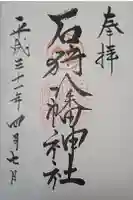 奉拝
石狩八幡神社
平成三十一年四月七日